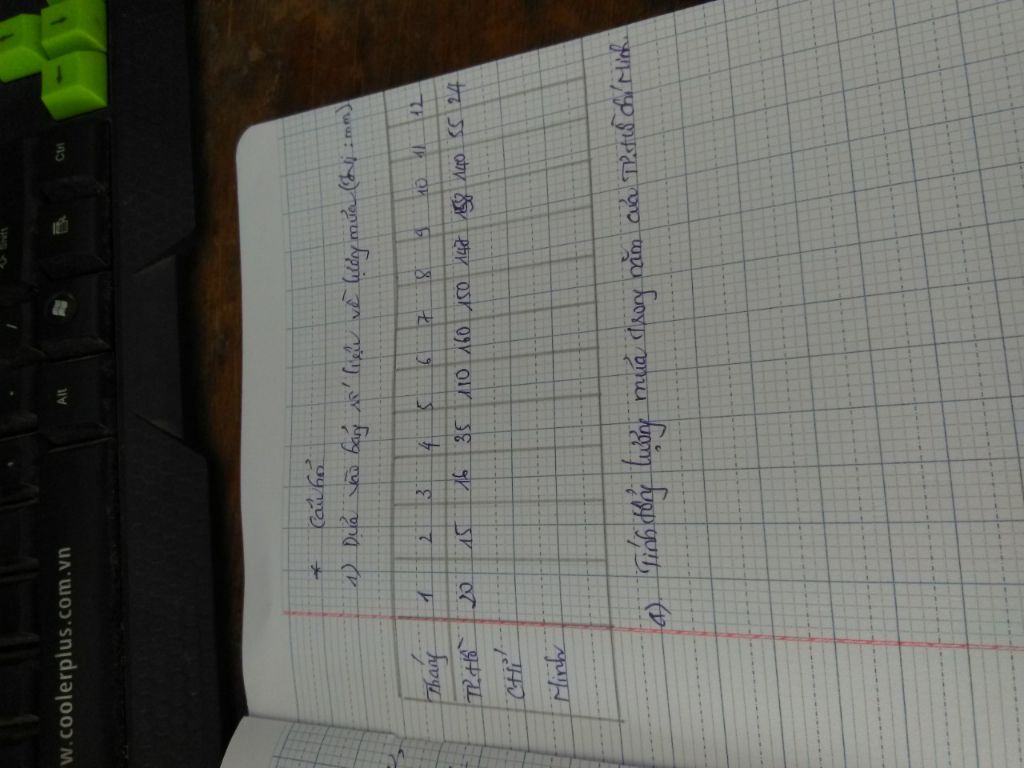 * Câu hỏi
1) Dựa vào bảng số liệu về lượng mưa (Đ.vị: mm)
Tháng 1 2 3 4 5 6 7 8 9 10 11 12
TP.Hồ 20 15 16 35 110 160 150 140 55 24
Chí
Minh
a) Tính tổng lượng mưa trong năm của TP.Hồ Chí Minh.
w.coolerplus.com.vn
Alt
Ctrl